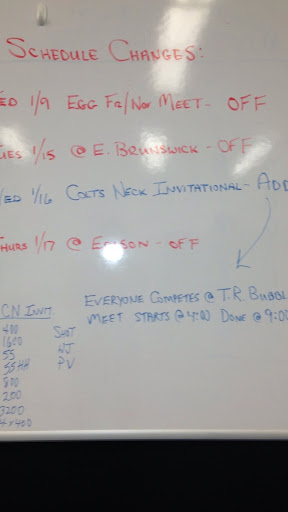 SCHEDULE CHANGES:
ED 1/9 EGG FR/NOV MEET - OFF
UES 1/15 @ E. BRUNSWICK - OFF
WED 1/16 COLTS NECK INVITATIONAL - ADD
HURS 1/17 @ EDISON - OFF
EVERYONE COMPETES @ T.R. BUBBL
MEET STARTS @ 4:00 DONE @ 9:00
CN INVIT.
400 SHOT
1600 HJ
55 PV
55HH
800
200
3200
4x400